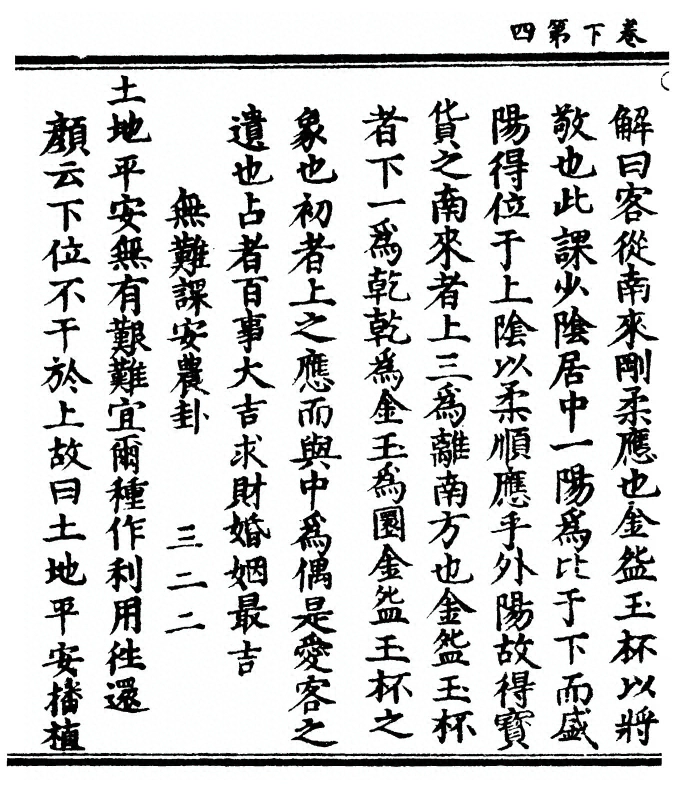 卷下第四
解曰客從南來剛柔應也金盤玉杯以將
敬也此課少陰居中一陽爲比于下而盛
陽得位于上陰以柔順應乎外陽故得寶
貨之南來者上三爲離南方也金盤玉杯
者下一爲乾乾爲金玉爲圜金盤玉杯之
象也初者上之應而與中爲偶是愛客之
遺也占者百事大吉求財婚姻最吉
無難課安農卦 三二二
土地平安無有艱難宜爾種作利用往還
顏云下位不干於上故曰土地平安播植